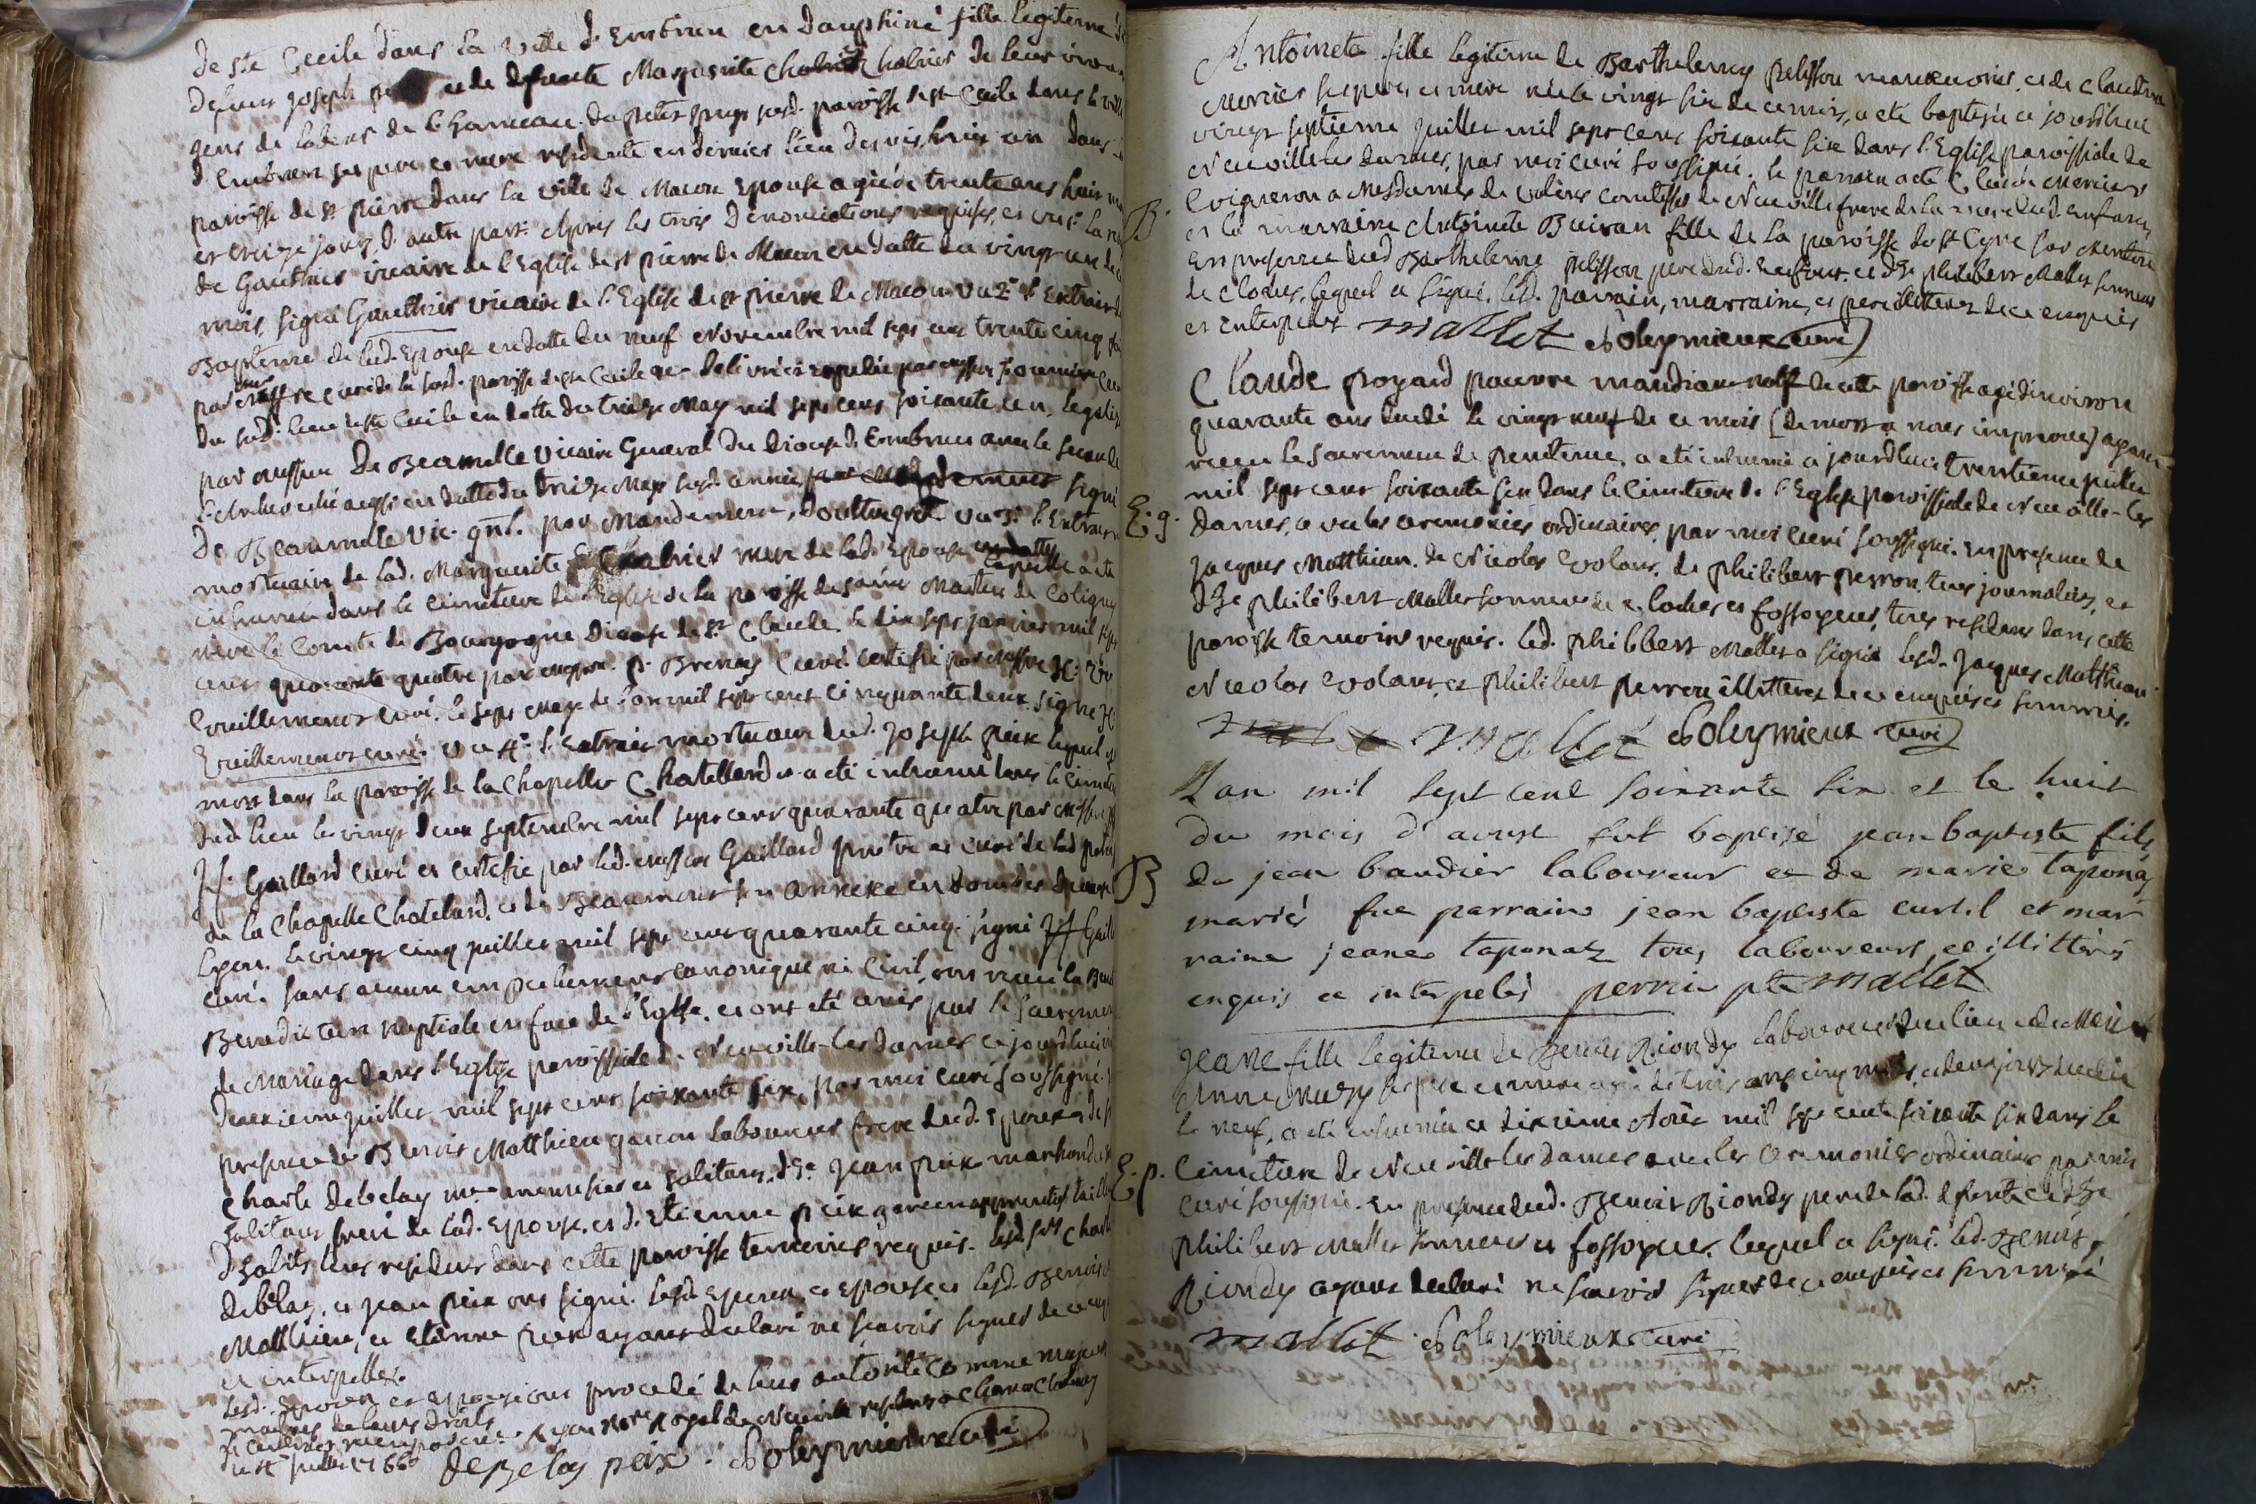 de ste Cecile dans la ville d'Embrun en dauphiné fille legitime
defunt joseph peix et de defunte Marguerite Chabrier de leur
de ste Cecile dans la
d'Embrun ses pere et mere residente en dernier lieu depuis huit an dans
paroisse de st pierre dans la ville de Macon Epouse agée de trente ans huit
et treize jours d'autre part. Apres les trois denonciations requises, et vu 1° la
de Gauthier vicaire de l'Eglise de st pierre de Macon en datte du vingt un de
mois, signé Gauthier vicaire de l'Eglise de st pierre de Macon. Vu 2° l'Extrait
Baptême de lad. Epouse en datte du neuf Novembre mil sept cent trente cinq
par curé de la susd. paroisse de ste Cecile delivré et expedié par messire fournier
du susd. lieu de ste Cecile en datte du treize May mil sept cent soixante un, legalisé
par messire De Beaumelle Vicaire General du Diocese d'Embrun avec le sceau de
l'Archeveché aussi en datte du treize May susd. année signé
De Beaumelle Vic. gnl. par Mandement, vu 3° l'Extrait
mortuaire de lad. Marguerite Chabrier mere de lad. Epouse laquelle a eté
inhumée dans le cimetiere de l'Eglise de la paroisse de saint Martin de Coligny
le Comté de Bourgogne Diocese de st Claude le dix sept janvier mil sept
cent quarante quatre par messire p. Brenay Curé. certifié par messire
Vuillemenot curé. le sept May de l'an mil sept cent cinquante deux. signé
Vuillemenot curé. Vu 4° l'Extrait mortuaire dud. joseph peix lequel
mort dans la paroisse de la Chapelle Chatellard a eté inhumé dans le cimetiere
dud. lieu le vingt deux septembre mil sept cent quarante quatre par messire
Gaillard curé et certifié par led. messire Gaillard pretre et curé de lad. paroisse
de la Chapelle Chatelard, et de Beaumont son annexe en Dombes
Lyon. le vingt cinq juillet mil sept cent quarante cinq. signé Gaillard
curé. sans aucun empechement canonique ni civil, ont recu la
Benediction nuptiale en face de l'Eglise, et ont eté unis par le sacrement
de Mariage dans l'Eglise paroissiale de Neuville-les Dames ce jourdhui
deuxieme juillet mil sept cent soixante six, par moi curé soussigné
presence de Benoit Matthieu garcon laboureur frere dud. Epoux, de
Charle debelay me menuisier jean peix marchand
frere de lad. Epouse, et d'Etienne peix garcon apprentif tailleur
d'habits tous residents dans cette paroisse temoins requis. lesd. srs Charle
debelay, et jean peix ont signé. lesd. Epoux et Epouse et lesd. Benoit
Matthieu, et Etienne peix ayant declaré ne scavoir signer de ce
et interpellés.
lesd. Epoux et Epouse ont procedé de leur autorité comme majeurs
maitres de leurs droits.
juillet 1766 debelay peix Soleymieux curé
Antoinete fille legitime de Barthelemy pelisson manœuvrier, et de Claudine
Mercier ses pere, et mere née le vingt six de ce mois, a eté baptisée ce jourdhui
vingt septieme juillet mil sept cent soixante six dans l'Eglise paroissiale de
Neuville les dames, par moi curé soussigné. le parrain a eté Claude Mercier
B. vigneron a Mesdames de Valeins comtesses de Neuville frere de la mere dud. enfant,
et la marraine Antoinete Buiron fille de la paroisse de st Cyre sur Menton
en presence dud. Barthelemi pelisson pere dud. enfant, et de philibert Mallet sonneur
de cloches, lequel a signé. led. parrain, marraine, et pere illitterez de ce enquis
et interpellés mallet Soleymieux curé
Claude poyard pauvre mandiant natif de cette paroisse agé d'environ
quarante ans decedé le vingt neuf de ce mois (de mort a nous imprevue) ayant
recu le sacrement de penitence, a eté inhumé ce jourdhui trentieme juillet
mil sept cent soixante six dans le cimetiere de l'Eglise paroissiale de Neuville-les
E. g. dames, avec les ceremonies ordinaires, par moi curé soussigné. En presence de
jacques Matthieu, de Nicolas Volant, de philibert perron, tous journaliers, et
de philibert Mallet sonneur de cloches et fossoyeur, tous residens dans cette
paroisse temoins requis. led. philibert Mallet a signé lesd. jacques Matthieu
Nicolas Volant, et philibert perron illitterez de ce enquis et sommés.
mallet Soleymieux curé
L'an mil sept cent soixante six et le huit
du mois d'aoust fut baptisé jean baptiste fils
B de jean baudier laboureur et de marie taponaz
mariés fut parrain jean baptiste curtil et mar
raine jeane taponaz tous laboureurs et illitterés
enquis et interpelés perrin ptre mallet
jeane fille legitime de Benoit Riondy laboureur dud. lieu et de
Anne Muzy ses pere et mere agée de trois ans cinq mois, et deux jours decedée
le neuf, a eté inhumée ce dixieme Août mil sept cent soixante six dans le
E. p. cimetiere de Neuville les dames avec les ceremonies ordinaires par moi
curé soussigné. En presence dud. Benoit Riondy pere de lad. defunte et de
philibert Mallet sonneur et fossoyeur, lequel a signé. led. Benoit
Riondy ayant declaré ne scavoir signer de ce enquis et sommé
mallet Soleymieux curé